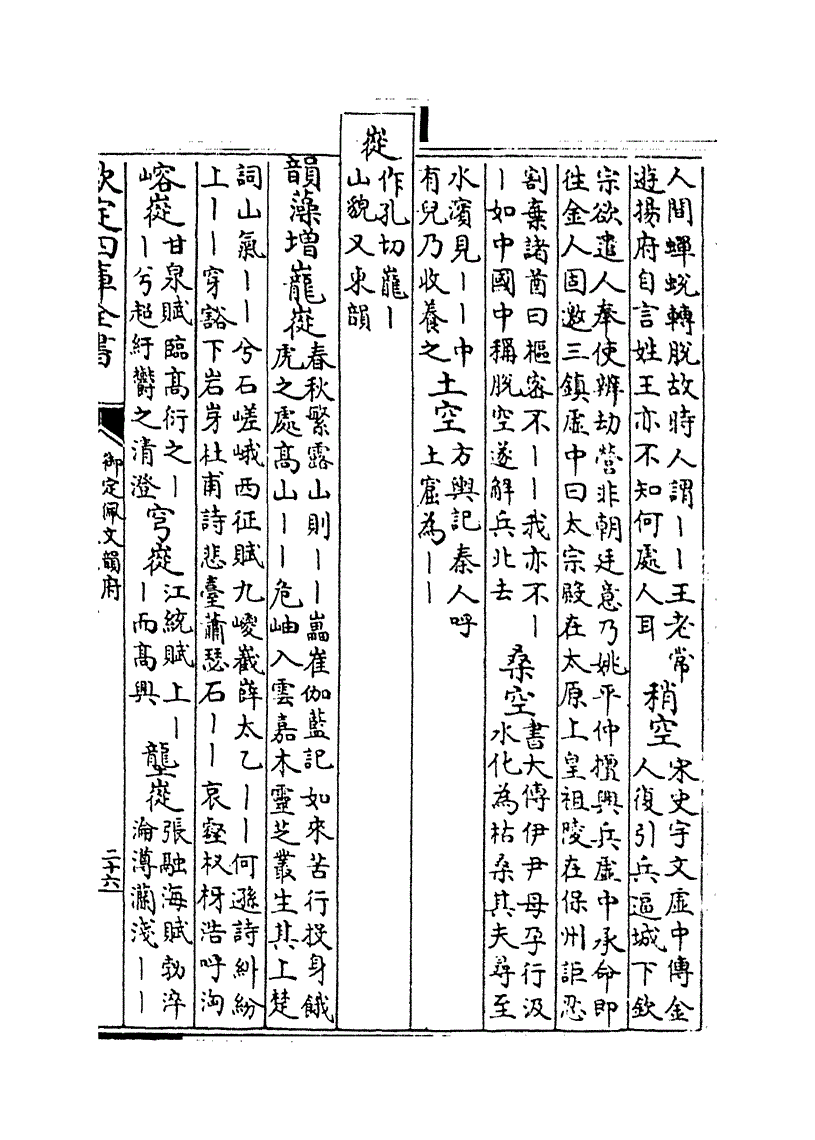 人間蟬蛻轉脫故時人謂丨丨王老常
遊揚府自言姓王亦不知何處人耳
稍空
宋史宇文虛中傳金
人復引兵逼城下欽
宗欲遣人奉使辨劫營非朝廷意乃姚平仲擅興兵虛中承命即
往金人固邀三鎮虛中曰太宗殿在太原上皇祖陵在保州詎忍
割棄諸酋曰樞密不丨丨我亦不丨
丨如中國中稱脫空遂解兵北去
桑空
書大傳伊尹母孕行汲
水化為枯桑其夫尋至
水濱見丨丨中
有兒乃收養之
土空
方輿記秦人呼
土窟為丨丨
嵸
作孔切巃丨
山貌又東韻
韻藻增巃嵸
春秋繁露山則丨丨嵓崔伽藍記如來苦行投身餓
虎之處高山丨丨危岫入雲嘉木靈芝叢生其上楚
詞山氣丨丨兮石嵯峨西征賦九嵕巀嶭太乙丨丨何遜詩糾紛
上丨丨穿豁下岩岸杜甫詩悲臺蕭瑟石丨丨哀壑杈枒浩呼洶
嵱嵸
甘泉賦臨高衍之丨
丨兮超紆鬱之清澄
穹嵸
江統賦上丨
丨而高興
壟嵸
張融海賦㪍淬
淪溥瀾淺丨丨
欽定四庫全書
御定佩文韻府
二十六